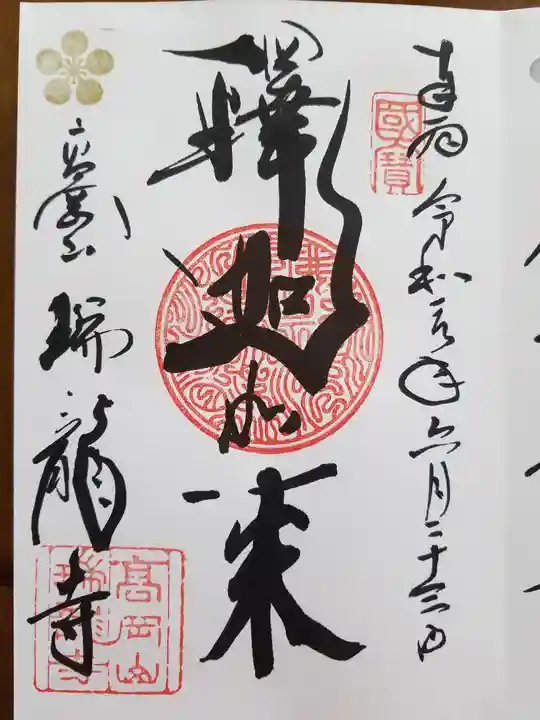 奉拝 令和元年 六月二十三日
國寶
釋迦如来
高岡山 瑞龍寺
高岡山
瑞龍寺